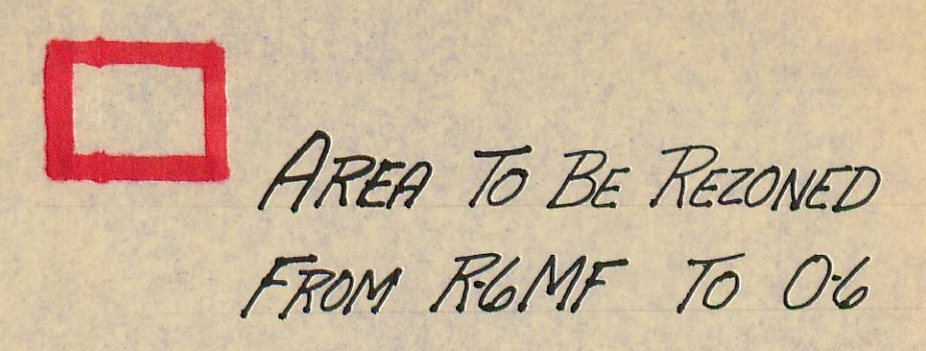 AREA TO BE REZONED
FROM R-6MF TO O-6